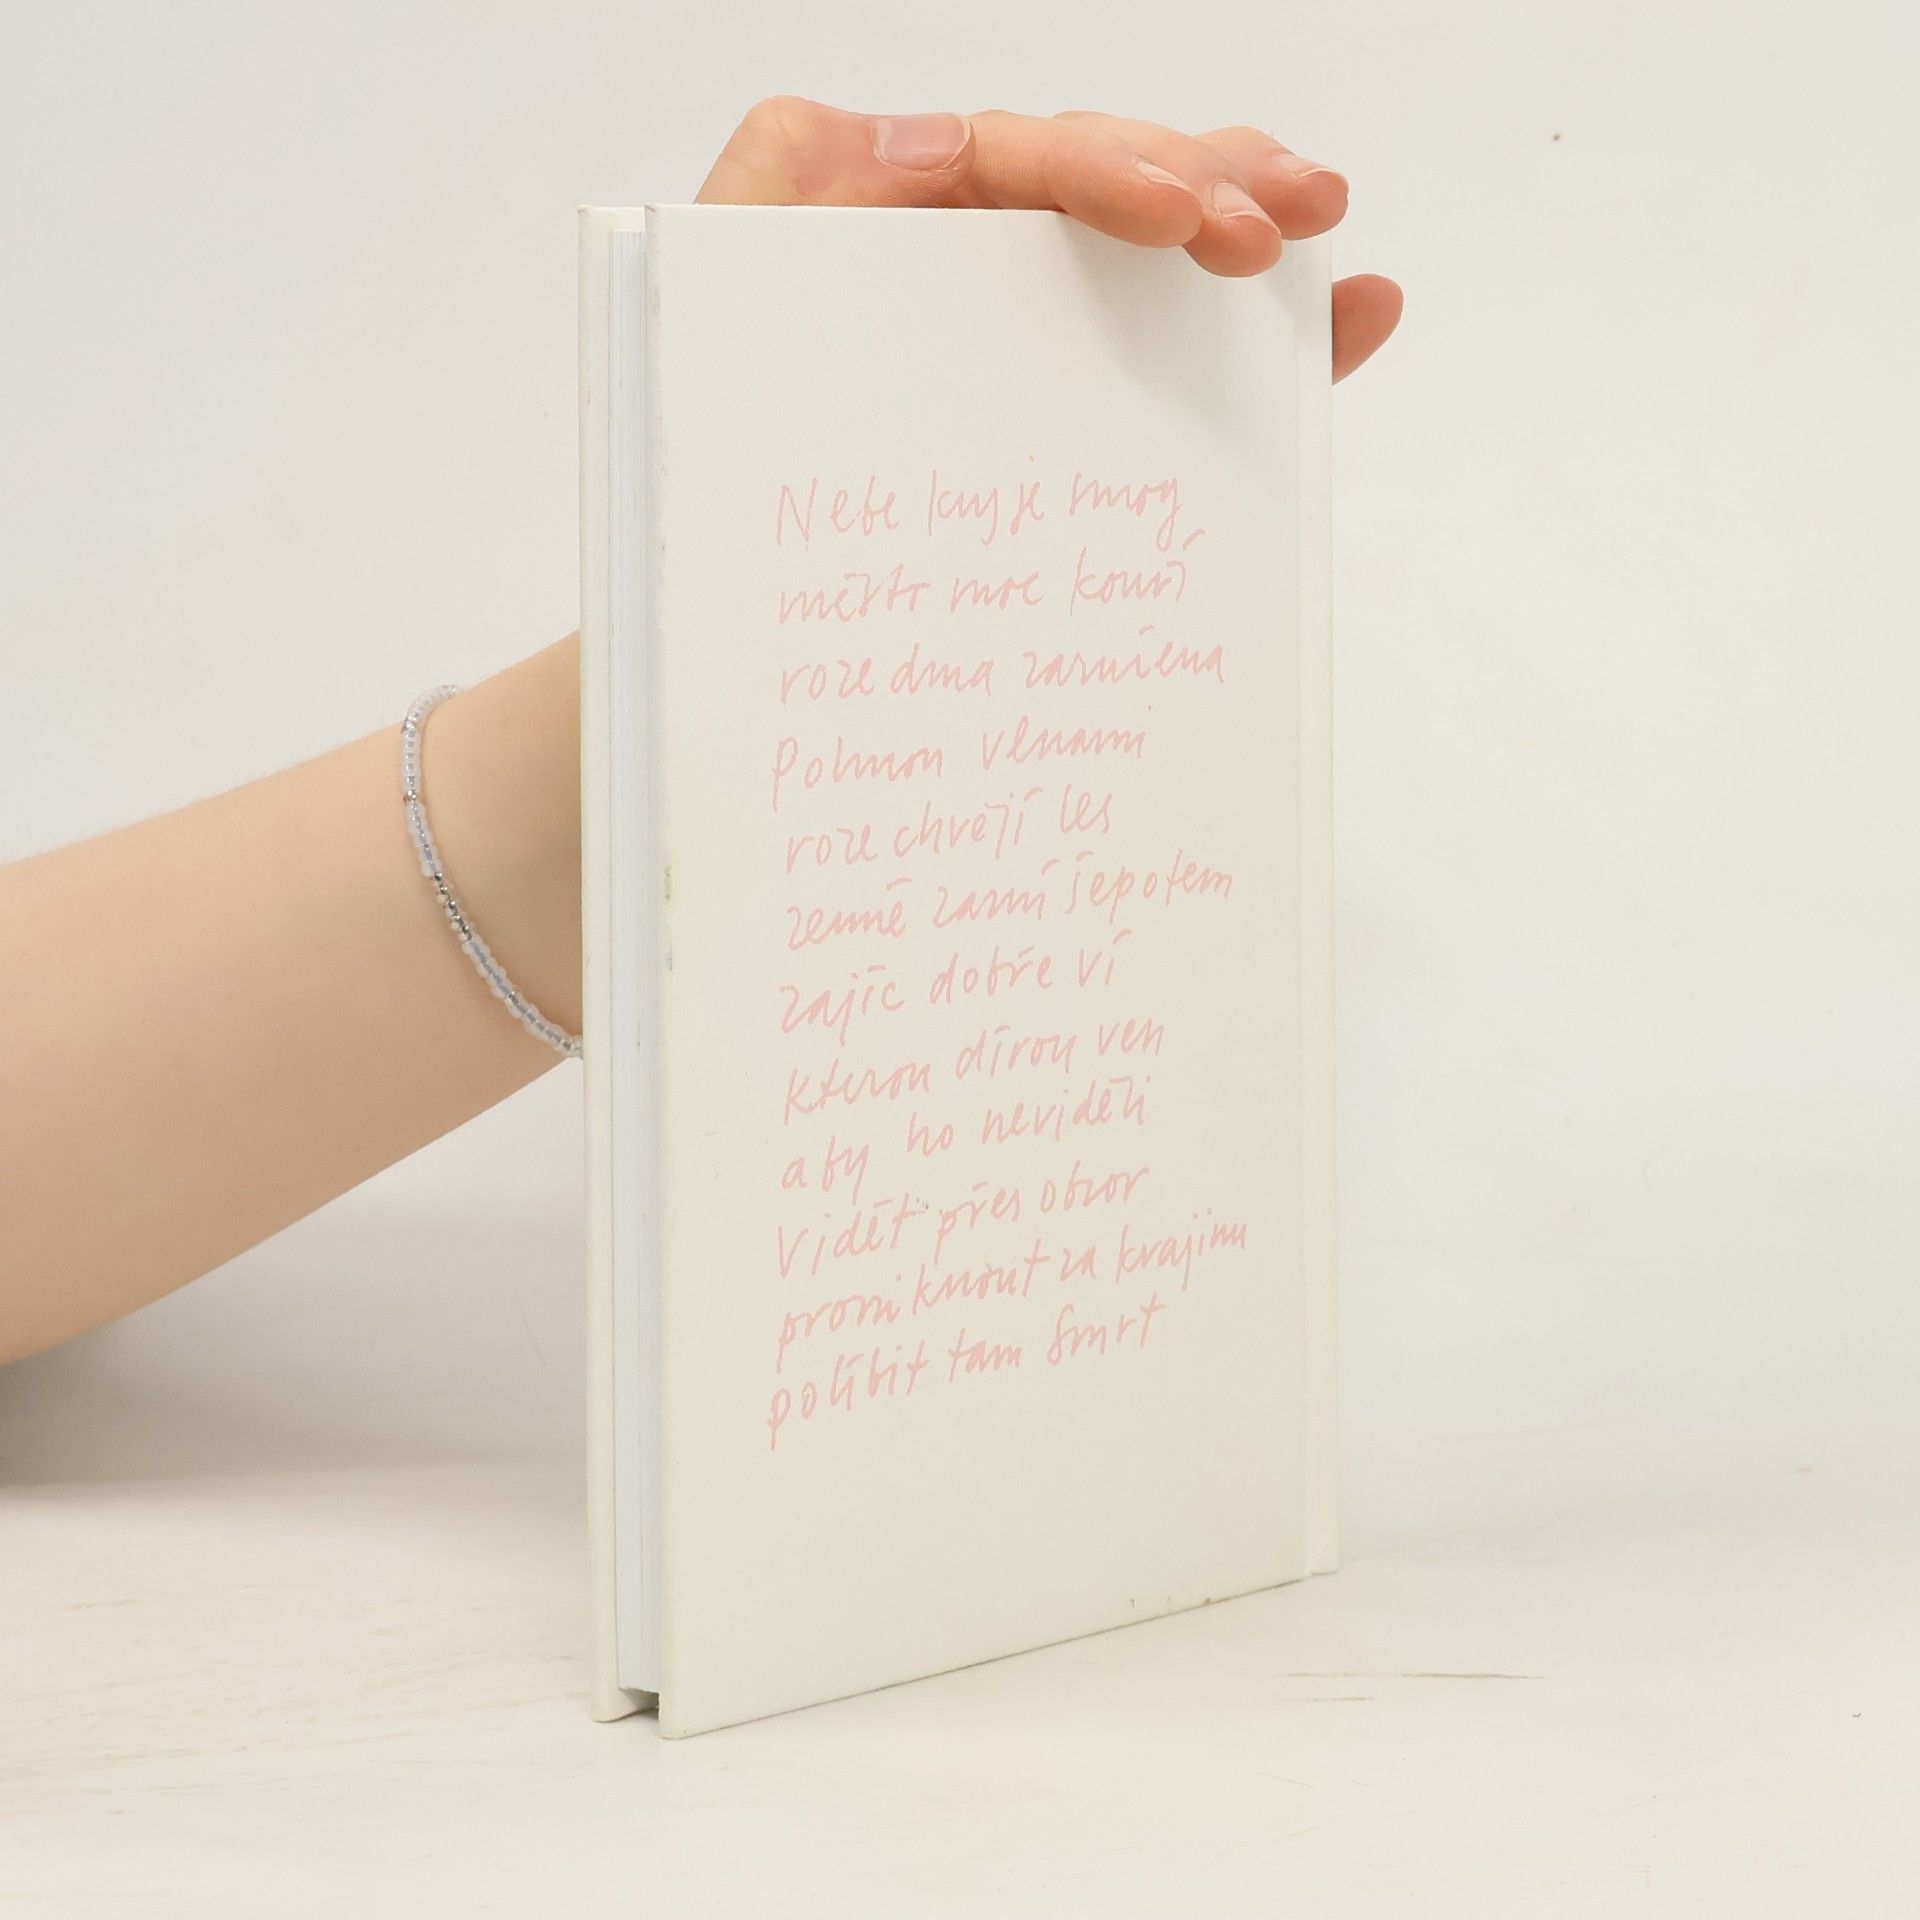 Nebe kryje smog
město moc kouří
roze dma zarućena
Pohnou vlnami
roze chvějí les
země zarní šepotem
zajíc dobře ví
kterou dírou ven
aby ho neviděli
Vidět přes obzor
proniknout za krajinu
políbit tam Smrt